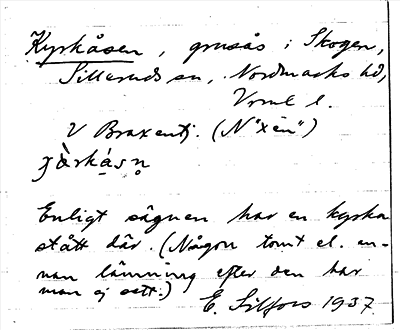 Kyrkåsen, grusås i Skogen,
Silleruds sn, Nordmarks hd,
Vrml l.
V Braxentj. (N"xen")
Enligt sägnen har en kyrka
stått där. (Någon tomt el. an-
nan lämning efter den har
man ej sett.)
E. Silfors 1937.